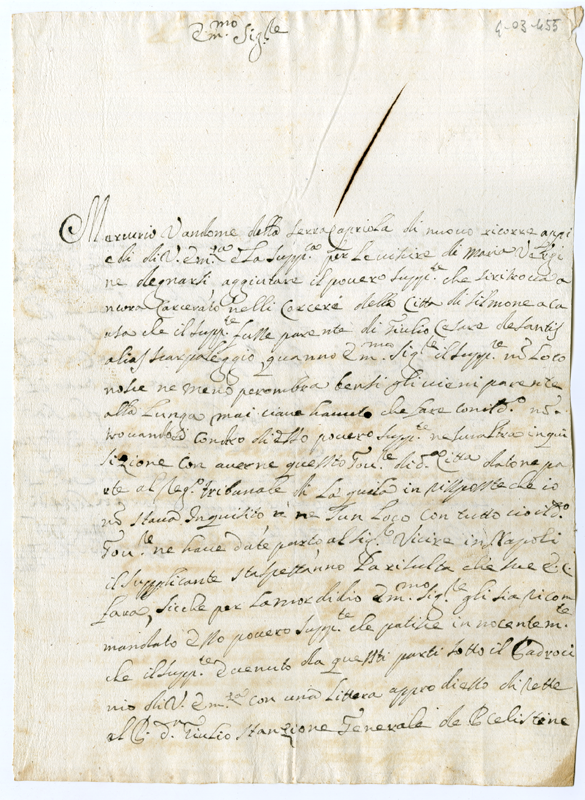 4-03-455
Em.mo Sig.re
Mercurio Vandome della terra Capriola di nuovo ricorre a pi
edi di V. Em.za e la supp.ca per le viscire di Maria Vergi
ne degnarsi aggiutare il povero supp.te che si ritrova a
ncora Carcerato nelli Carcere della Citta di Sulmone a ca
usa che il supp.te fusse parente di Giulio Cesare de Santis
alias Scarpaleggio quanno Em.mo Sig.re il supp.te n. Loco
nosce ne meno per ombra bensi gli vieni parente
alla Lunga, mai ciave havuto che fare con il d.o n
trovandosi contro di esso povero supp.te nesun altra inqui
sizione con averne questo Gov.re di d.a Citta dato ne pa
rte al Reg.o tribunale di La quila in risposte che io
no stava Inquisito in nesun Loco con tutto cio il d.o
Gov.re ne have dato parto al Sig.r Vicire in Napoli
il supplicante sta spettanno la risulta che sue E.
fara, sicche per lamor di dio Em.mo Sig.re gli sia ricom
mandato esso povero supp.te che patisce innocentem.te
che il supp.te e venuto da questi parti sotto il Padroci
nio di V. Em.za con una littera appro di esso di rette
al P. D. Giulio Stanzione Generale de P. Celistine